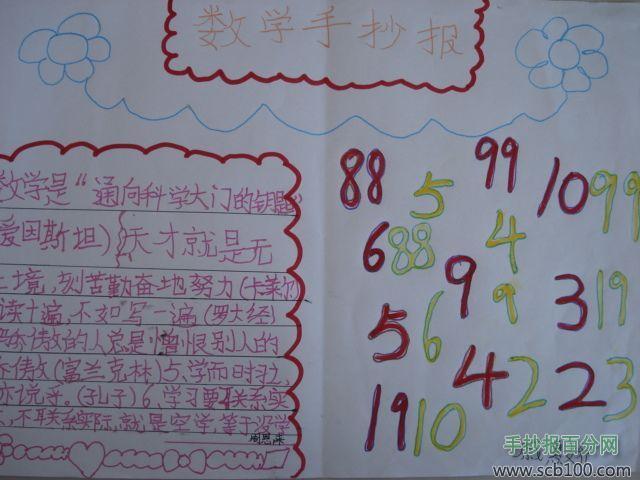 数学手抄报
数学是“通向科学大门的钥匙”
爱因斯坦)天才就是无
止境,刻苦勤奋地努力(卡莱尔)
读十遍,不如写一遍(罗大经)
的人总是憎恨别人的
(富兰克林)5、学而时习之,
亦说乎。(孔子)6、学习要联系实
不联系实际,就是空学,等于没学
周恩来
88 5 99 10 99
6 88 4
9 9 3 19
5 6
19 10 4 2 2 3
手抄报百分网
www.scb100.com